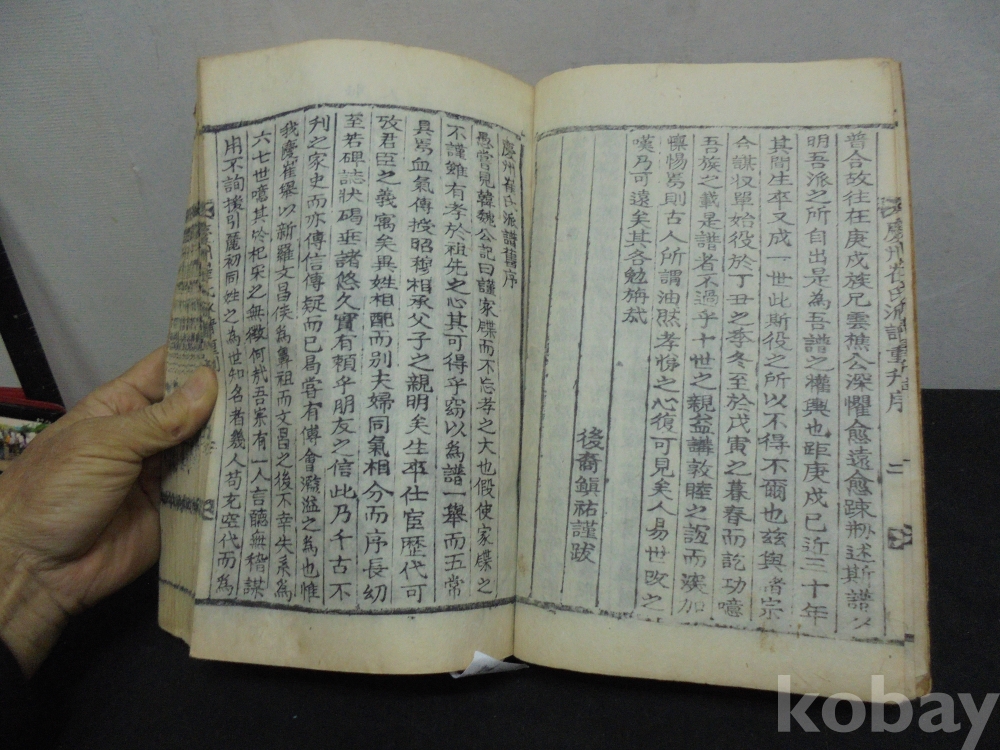 普合故往在庚戌族兄雲樵公深懼愈遠愈疎刱述斯譜以
明吾派之所自出是為吾譜之權輿也距庚戌已近三十年
其間生卒又成一世此斯役之所以不得不爾也玆與諸宗
合謀収單始役於丁丑之季冬至於戊寅之暮春而訖功噫
吾族之載是譜者不過乎十世之親益講敦睦之誼而深加
惕焉則古人所謂油然孝悌之心復可見矣人易世改之
嘆乃可遠矣其各勉旃哉
後裔鎭祐謹跋
慶州崔氏派譜舊序
愚嘗見韓魏公記曰謹家牒而不忘孝之大也假使家牒之
不謹雖有孝於祖先之心其可得乎竊以為譜一舉而五常
具焉血氣傳授昭穆相承父子之親明矣生卒仕宦歷代可
攷君臣之義寓矣異姓相配而別夫婦同氣相分而序長幼
至若碑誌狀碣垂諸悠久實有頼乎朋友之信此乃千古不
刋之家史而亦傳信傳疑而已曷嘗有傅會濫溢之為也惟
我慶崔舉以新羅文昌侯為鼻祖而文昌之後不幸失系為
六七世噫其於杞宋之無徵何哉吾宗有一人言聽無稽謀
用不詢援引麗初同姓之為世知名者幾人苟充空代而為
慶州崔氏派譜重刊序
二
kobay